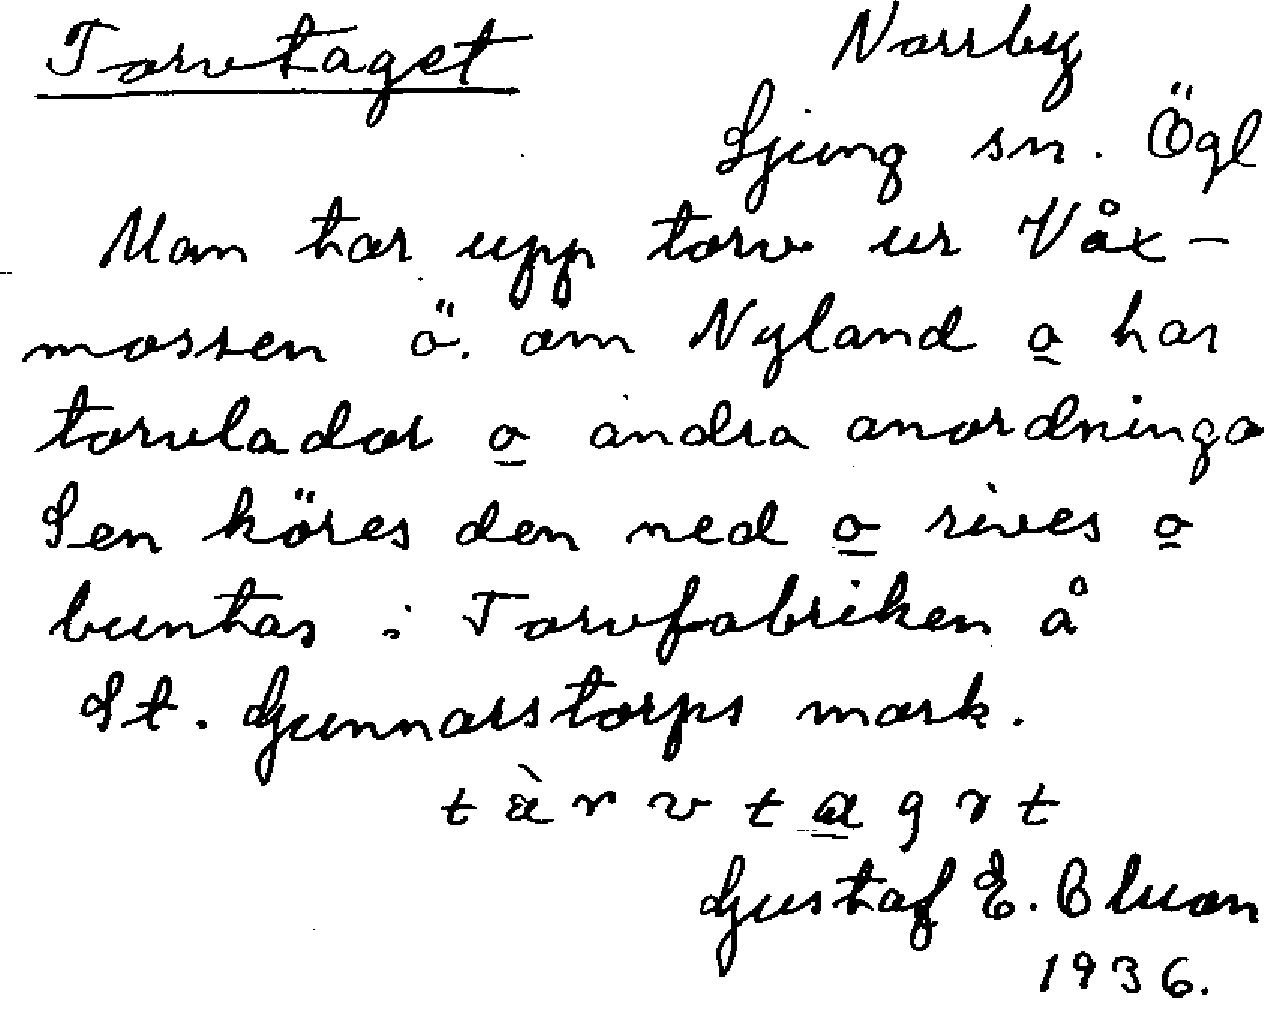 Torvtaget Norrby
Ljung sn. Ögl
Man tar upp torv ur Våx-
mossen ö. om Nyland o har
torvlador o andra anordninga
Sen köres den ned o rives o
buntas i Torvfabriken å
St. Gunnarstorps mark.
t à r v t a g ɤ t
Gustaf E.
1936.